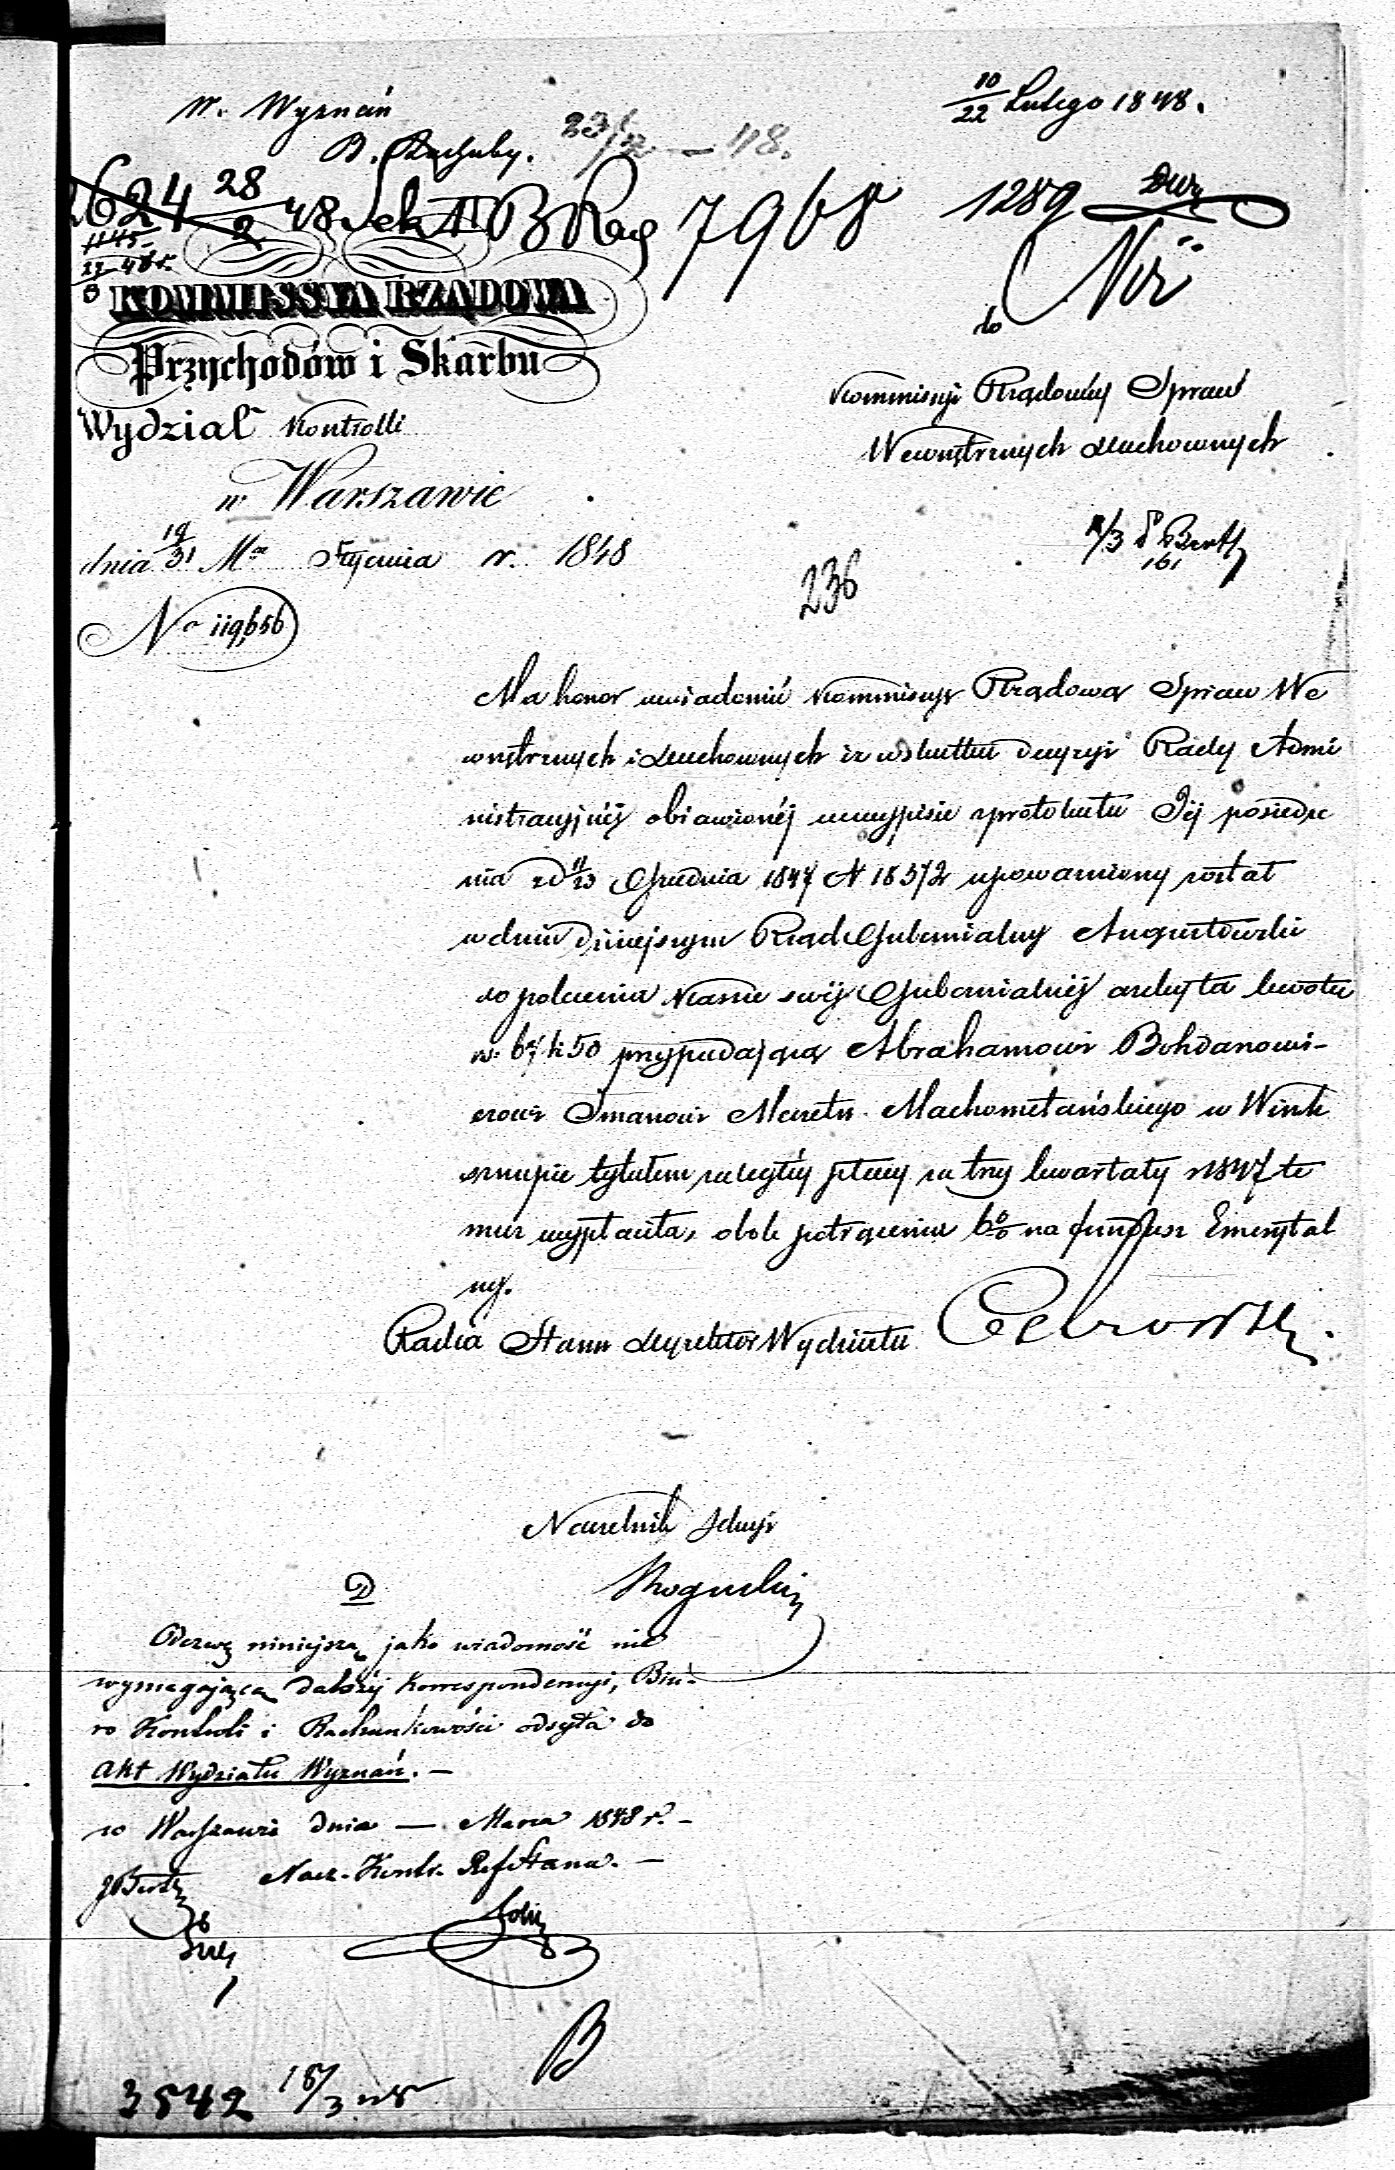 W. Wyznań
10/22 Lutego 1848.
B. Rachuby.
23/2 — 48.
2624 28/2 48 Sek II B Rag 7968
1289
1145
KOMMISSYA RZĄDOWA
Przychodów i Skarbu
do
Wydział Kontrolli
Kommissyi Rządowey Spraw
Wewnętrznych Duchownych
w Warszawie
dnia 19/31 Mca Stycznia r. 1848
236
No 119,656
Ma honor uwiadomić Kommissyę Rządową Spraw We
wnętrznych i Duchownych iż wskutku decyzyi Rady Admi
nistracyjnéj obiawionéj w wypisie z protokułu Jéj posiedze
nia z d 11/23 Grudnia 1847 N 18572 upoważniony został
w dniu dzisiejszym Rząd Gubernialny Augustowski
do polecenia Kassie swéj Gubernialnéj ażeby ta kwotę
rs. 67 k 50 przypadającą Abrahamowi Bohdanowi-
czowi Imanowi Meczetu Machometańskiego w Wink
sznupie tytułem zaległéj płacy za trzy kwartały r 1847 te
muż wypłaciła, obok potrącenia 6% na fundusz Emerytal
ny.
Radca Stanu Dyrektor Wydziału
Naczelnik Sekcyi
D
Odezwę niniejszą jako wiadomość nie
wymagającą dalszéj korrespondencyi, Biu-
ro Kontroli i Rachunkowości odsyła do
Akt Wydziału Wyznań. —
w Warszawie dnia — Marca 1848 r. -
Nacz. Kontr. Ref Stanu. —
B
3542 18/3 48